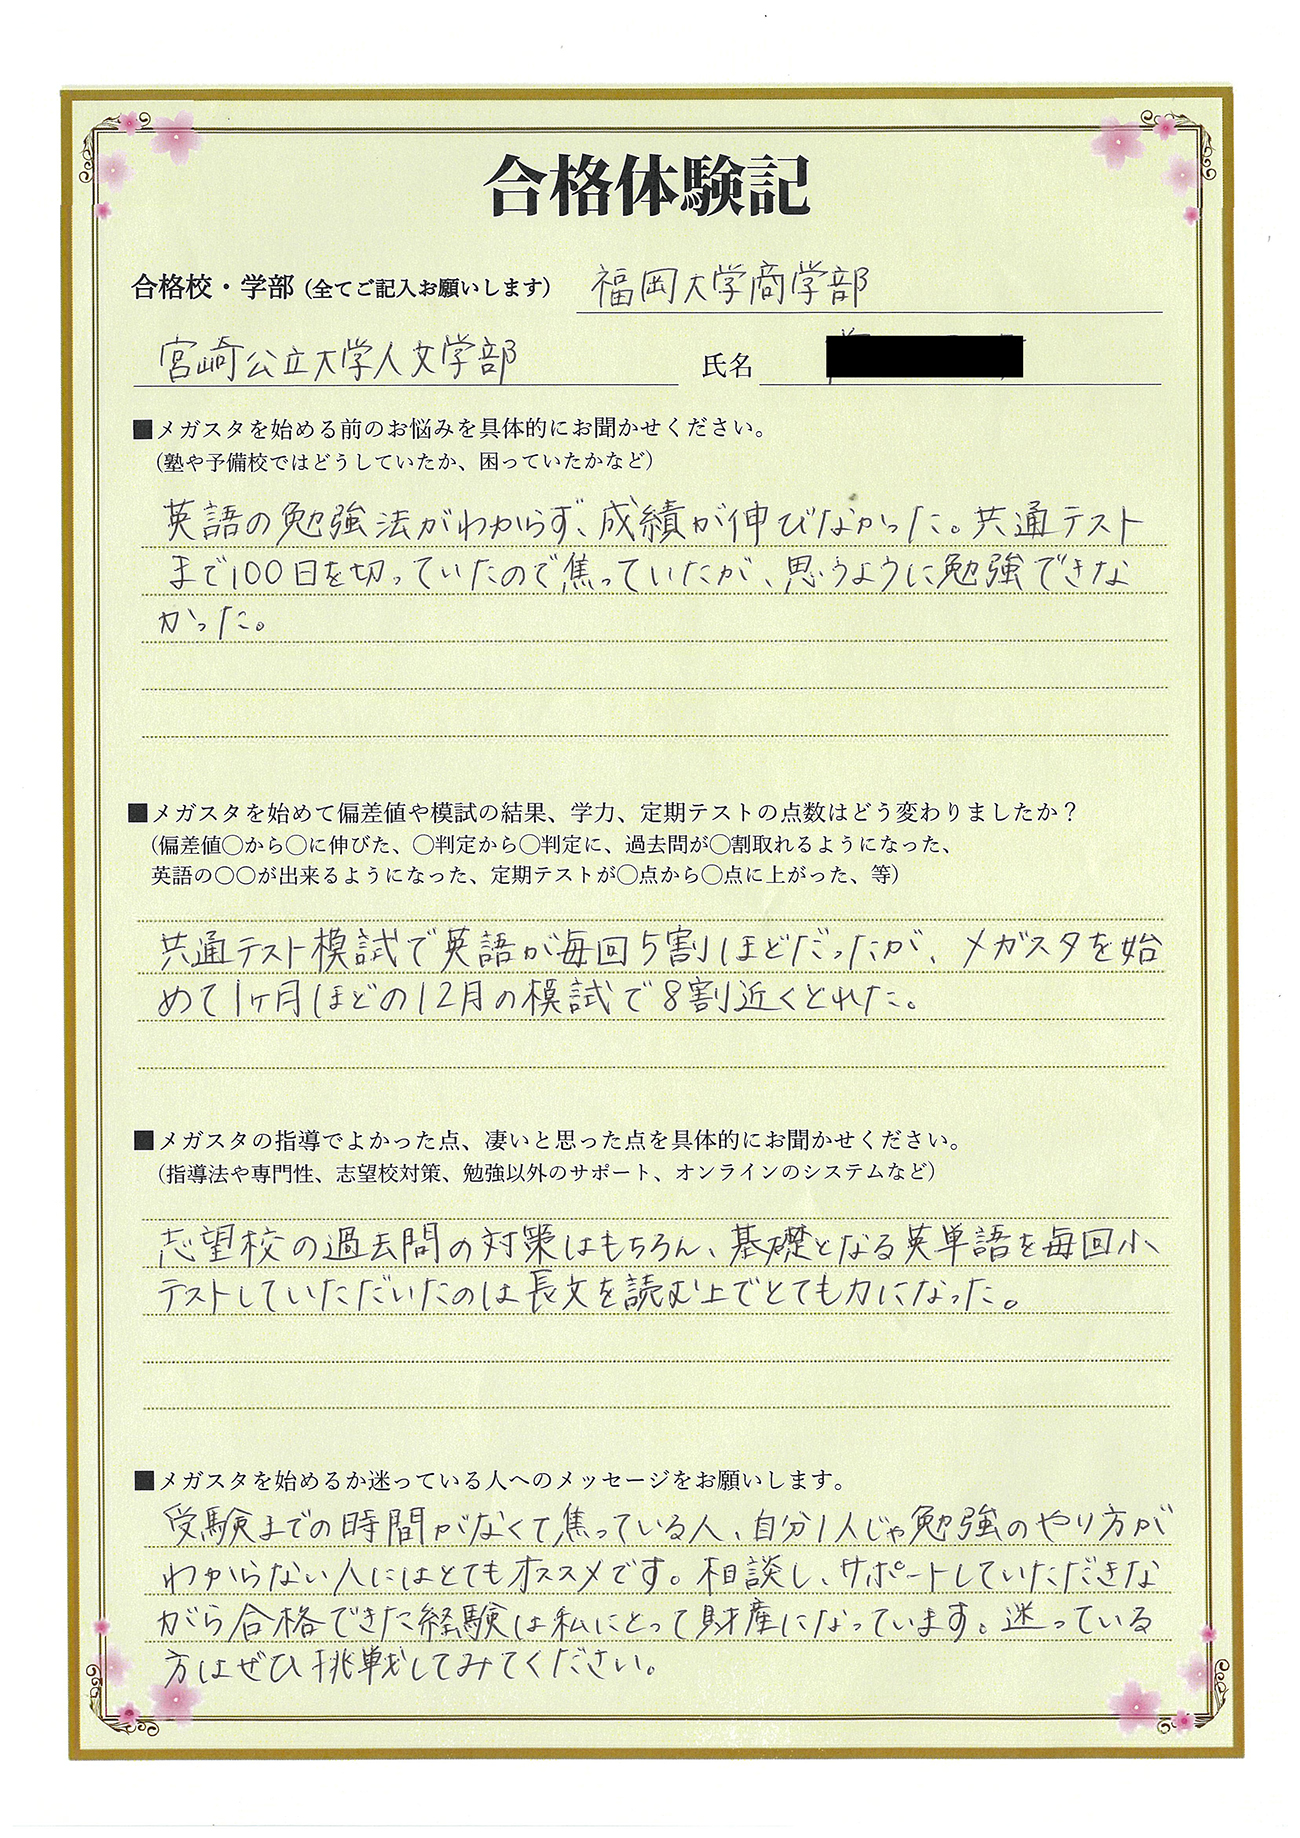 合格体験記
合格校・学部（全てご記入お願いします） 福岡大学商学部
宮崎公立大学人文学部 氏名
■メガスタを始める前のお悩みを具体的にお聞かせください。
（塾や予備校ではどうしていたか、困っていたかなど）
英語の勉強法がわからず、成績が伸びなかった。共通テスト
まで100日を切っていたので焦っていたが、思うように勉強できな
かった。
■メガスタを始めて偏差値や模試の結果、学力、定期テストの点数はどう変わりましたか？
（偏差値〇から〇に伸びた、〇判定から〇判定に、過去問が〇割取れるようになった、
英語の〇〇が出来るようになった、定期テストが〇点から〇点に上がった、等）
共通テスト模試で英語が毎回5割ほどだったが、メガスタを始
めて1ヶ月ほどの12月の模試で8割近くとれた。
■メガスタの指導でよかった点、凄いと思った点を具体的にお聞かせください。
（指導法や専門性、志望校対策、勉強以外のサポート、オンラインのシステムなど）
志望校の過去問の対策はもちろん、基礎となる英単語を毎回小
テストしていただいたのは長文を読む上でとても力になった。
■メガスタを始めるか迷っている人へのメッセージをお願いします。
受験までの時間がなくて焦っている人、自分1人じゃ勉強のやり方が
わからない人にはとてもオススメです。相談し、サポートしていただきな
がら合格できた経験は私にとって財産になっています。迷っている
方はぜひ挑戦してみてください。